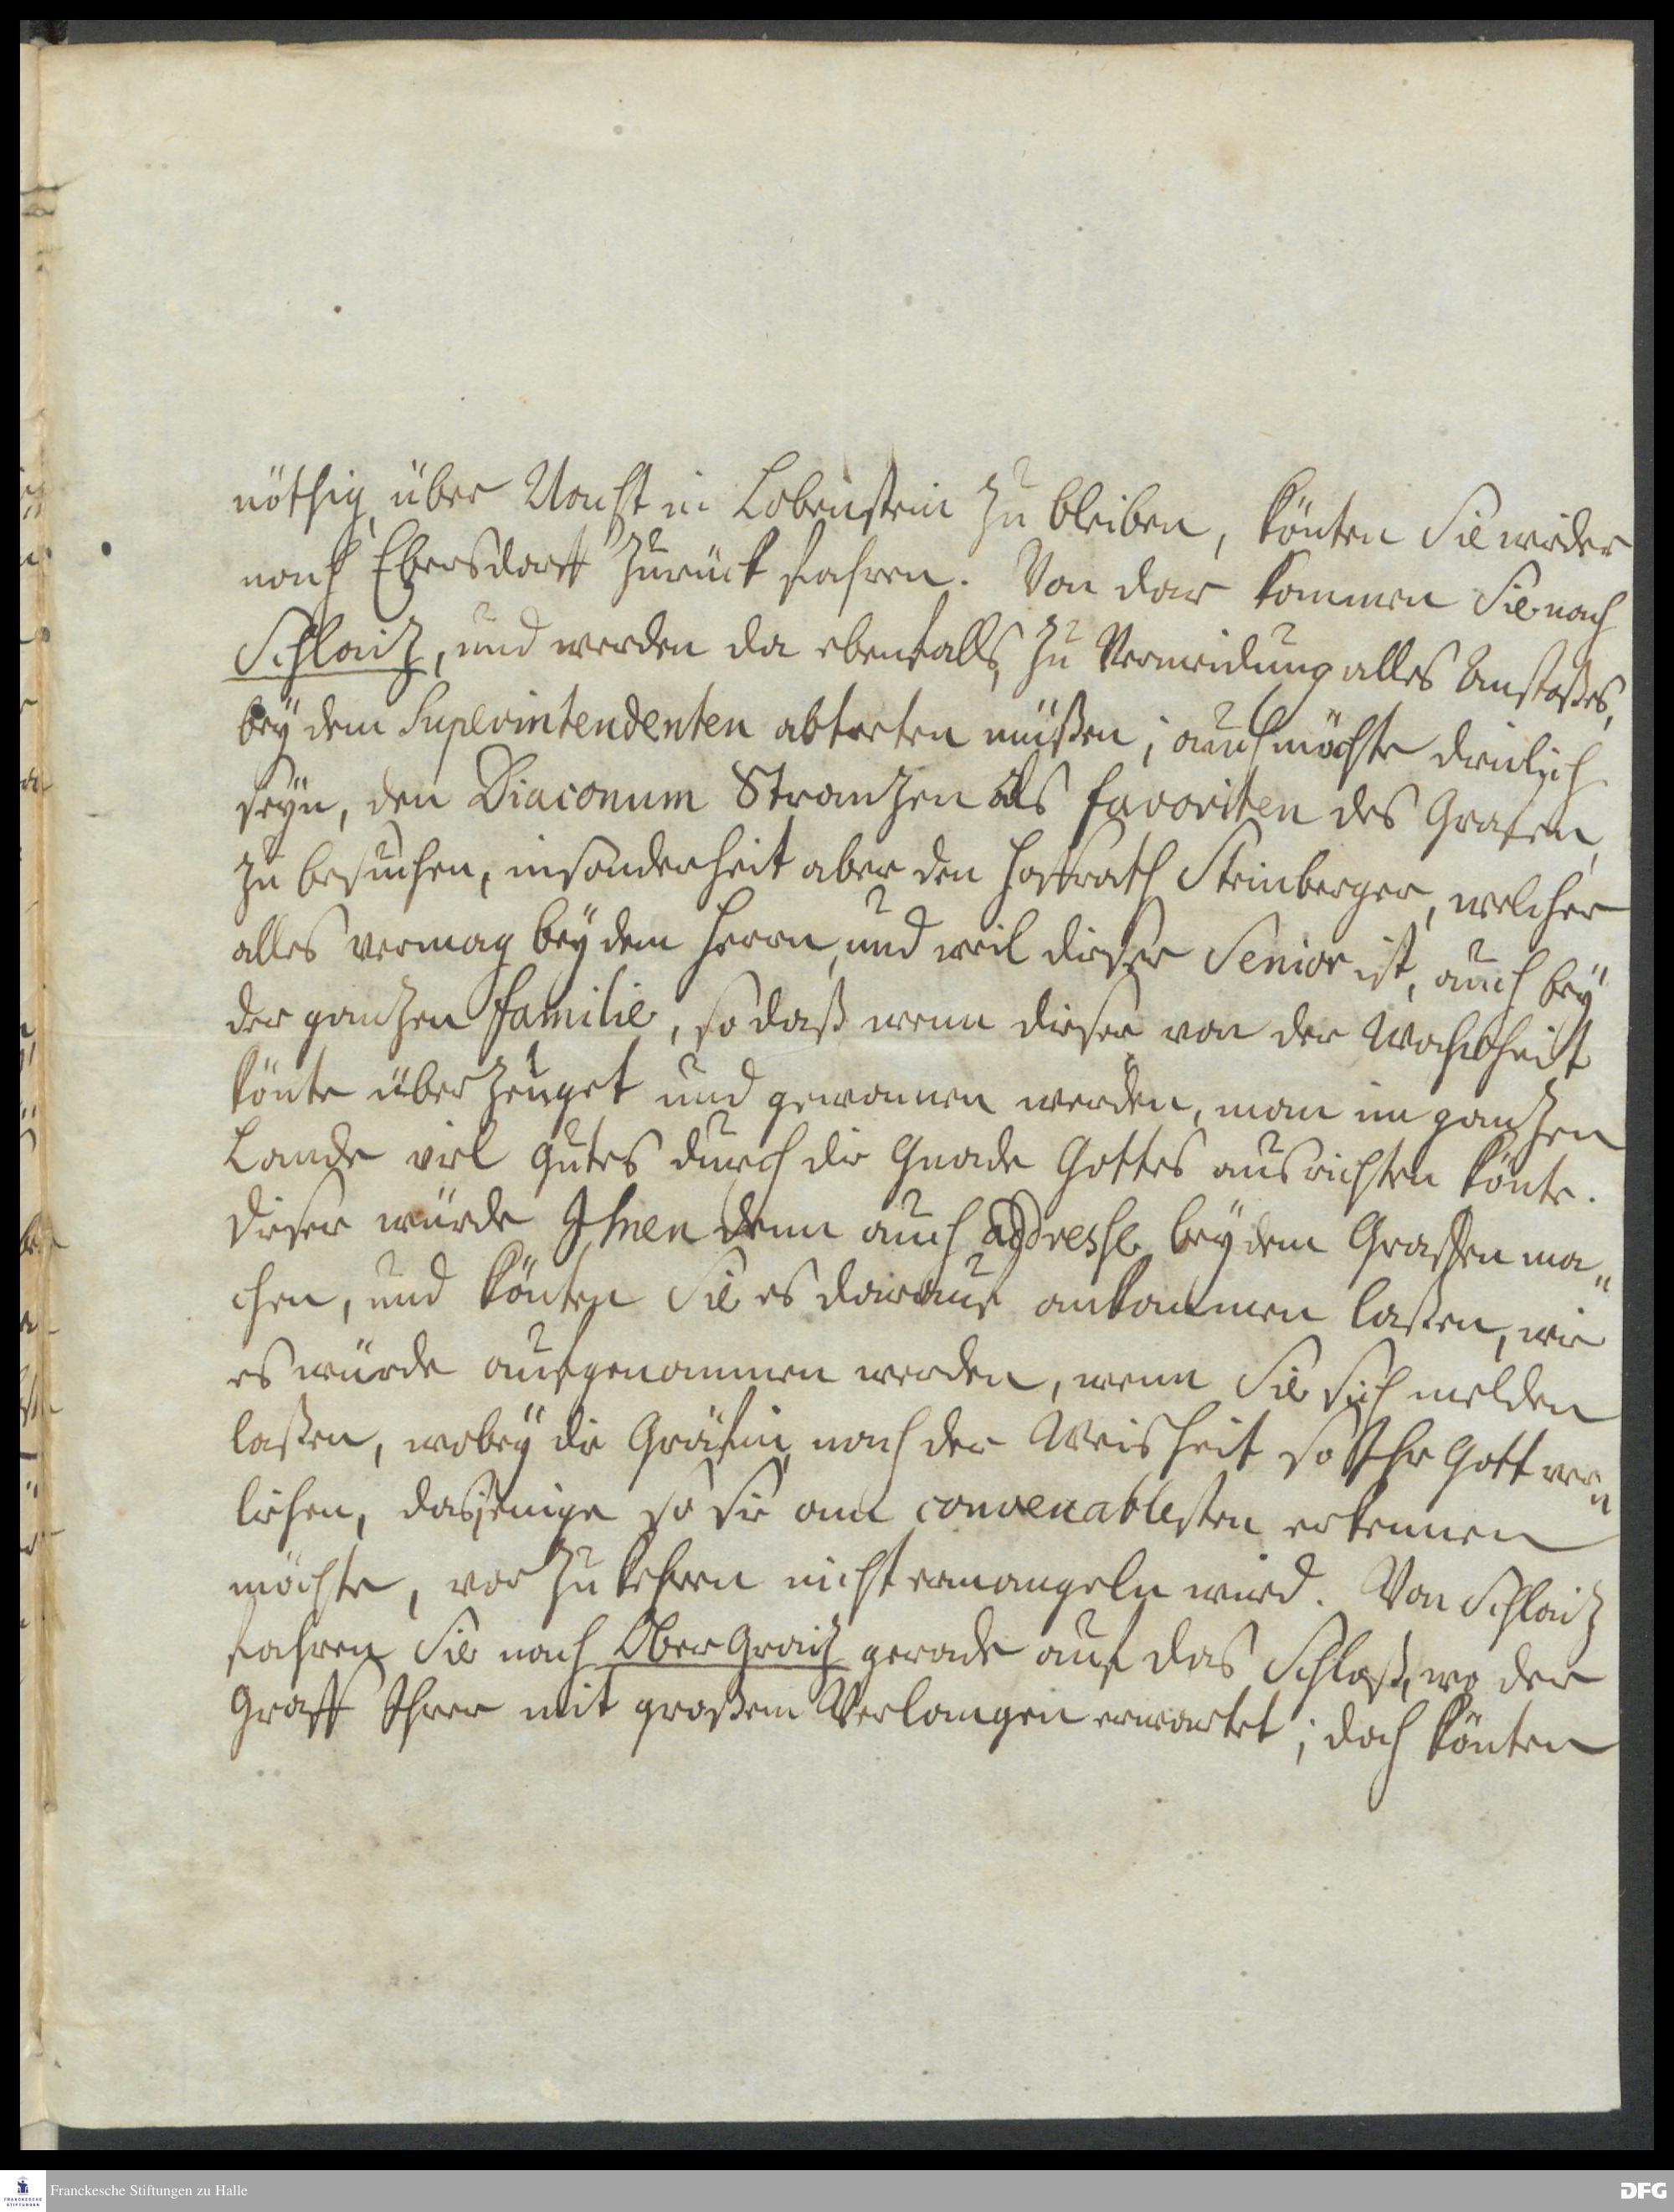 nöthig über Nacht in Lobenstein zu bleiben, könten Sie wieder
nach Ebersdorff zurück fahren. Von dar kommen Sie nach
Schlaitz, und werden da ebenfalls, zu Vermeidung alles Anstoßes,
bey dem Superintendenten abtreten müßen; auch möchte dienlich
seyn, den Diaconum Strantzen als favoriten des Grafen,
zu besuchen, insonderheit aber den Hoffrath Steinberger, welcher
alles vermag bey dem Herrn, und weil dieser Senior ist, auch bey
der gantzen familie, so daß wenn dieser von der Wahrheit
könte überzeuget und gewonnen werden, man im gantzen
Lande viel gutes durch die Gnade Gottes ausrichten könte.
Dieser würde Ihnen denn auch addresse bey dem Graffen ma„
chen, und könten Sie es darauf ankommen laßen, wie
es würde aufgenommen werden, wenn Sie sich melden
laßen, wobey die Gräfin nach der Weisheit so Ihr Gott ver„
liehen, dasjenige so sie am convenablesten erkennen
möchte, vor zu kehren nicht ermangeln wird. Von Schlaitz
fahren Sie nach Ober Graitz gerade auf das Schloß, wo der
Graff Ihrer mit großem Verlangen erwartet; doch könten
Franckesche Stiftungen zu Halle
FRANCKESCHE STIFTUNGEN
DFG